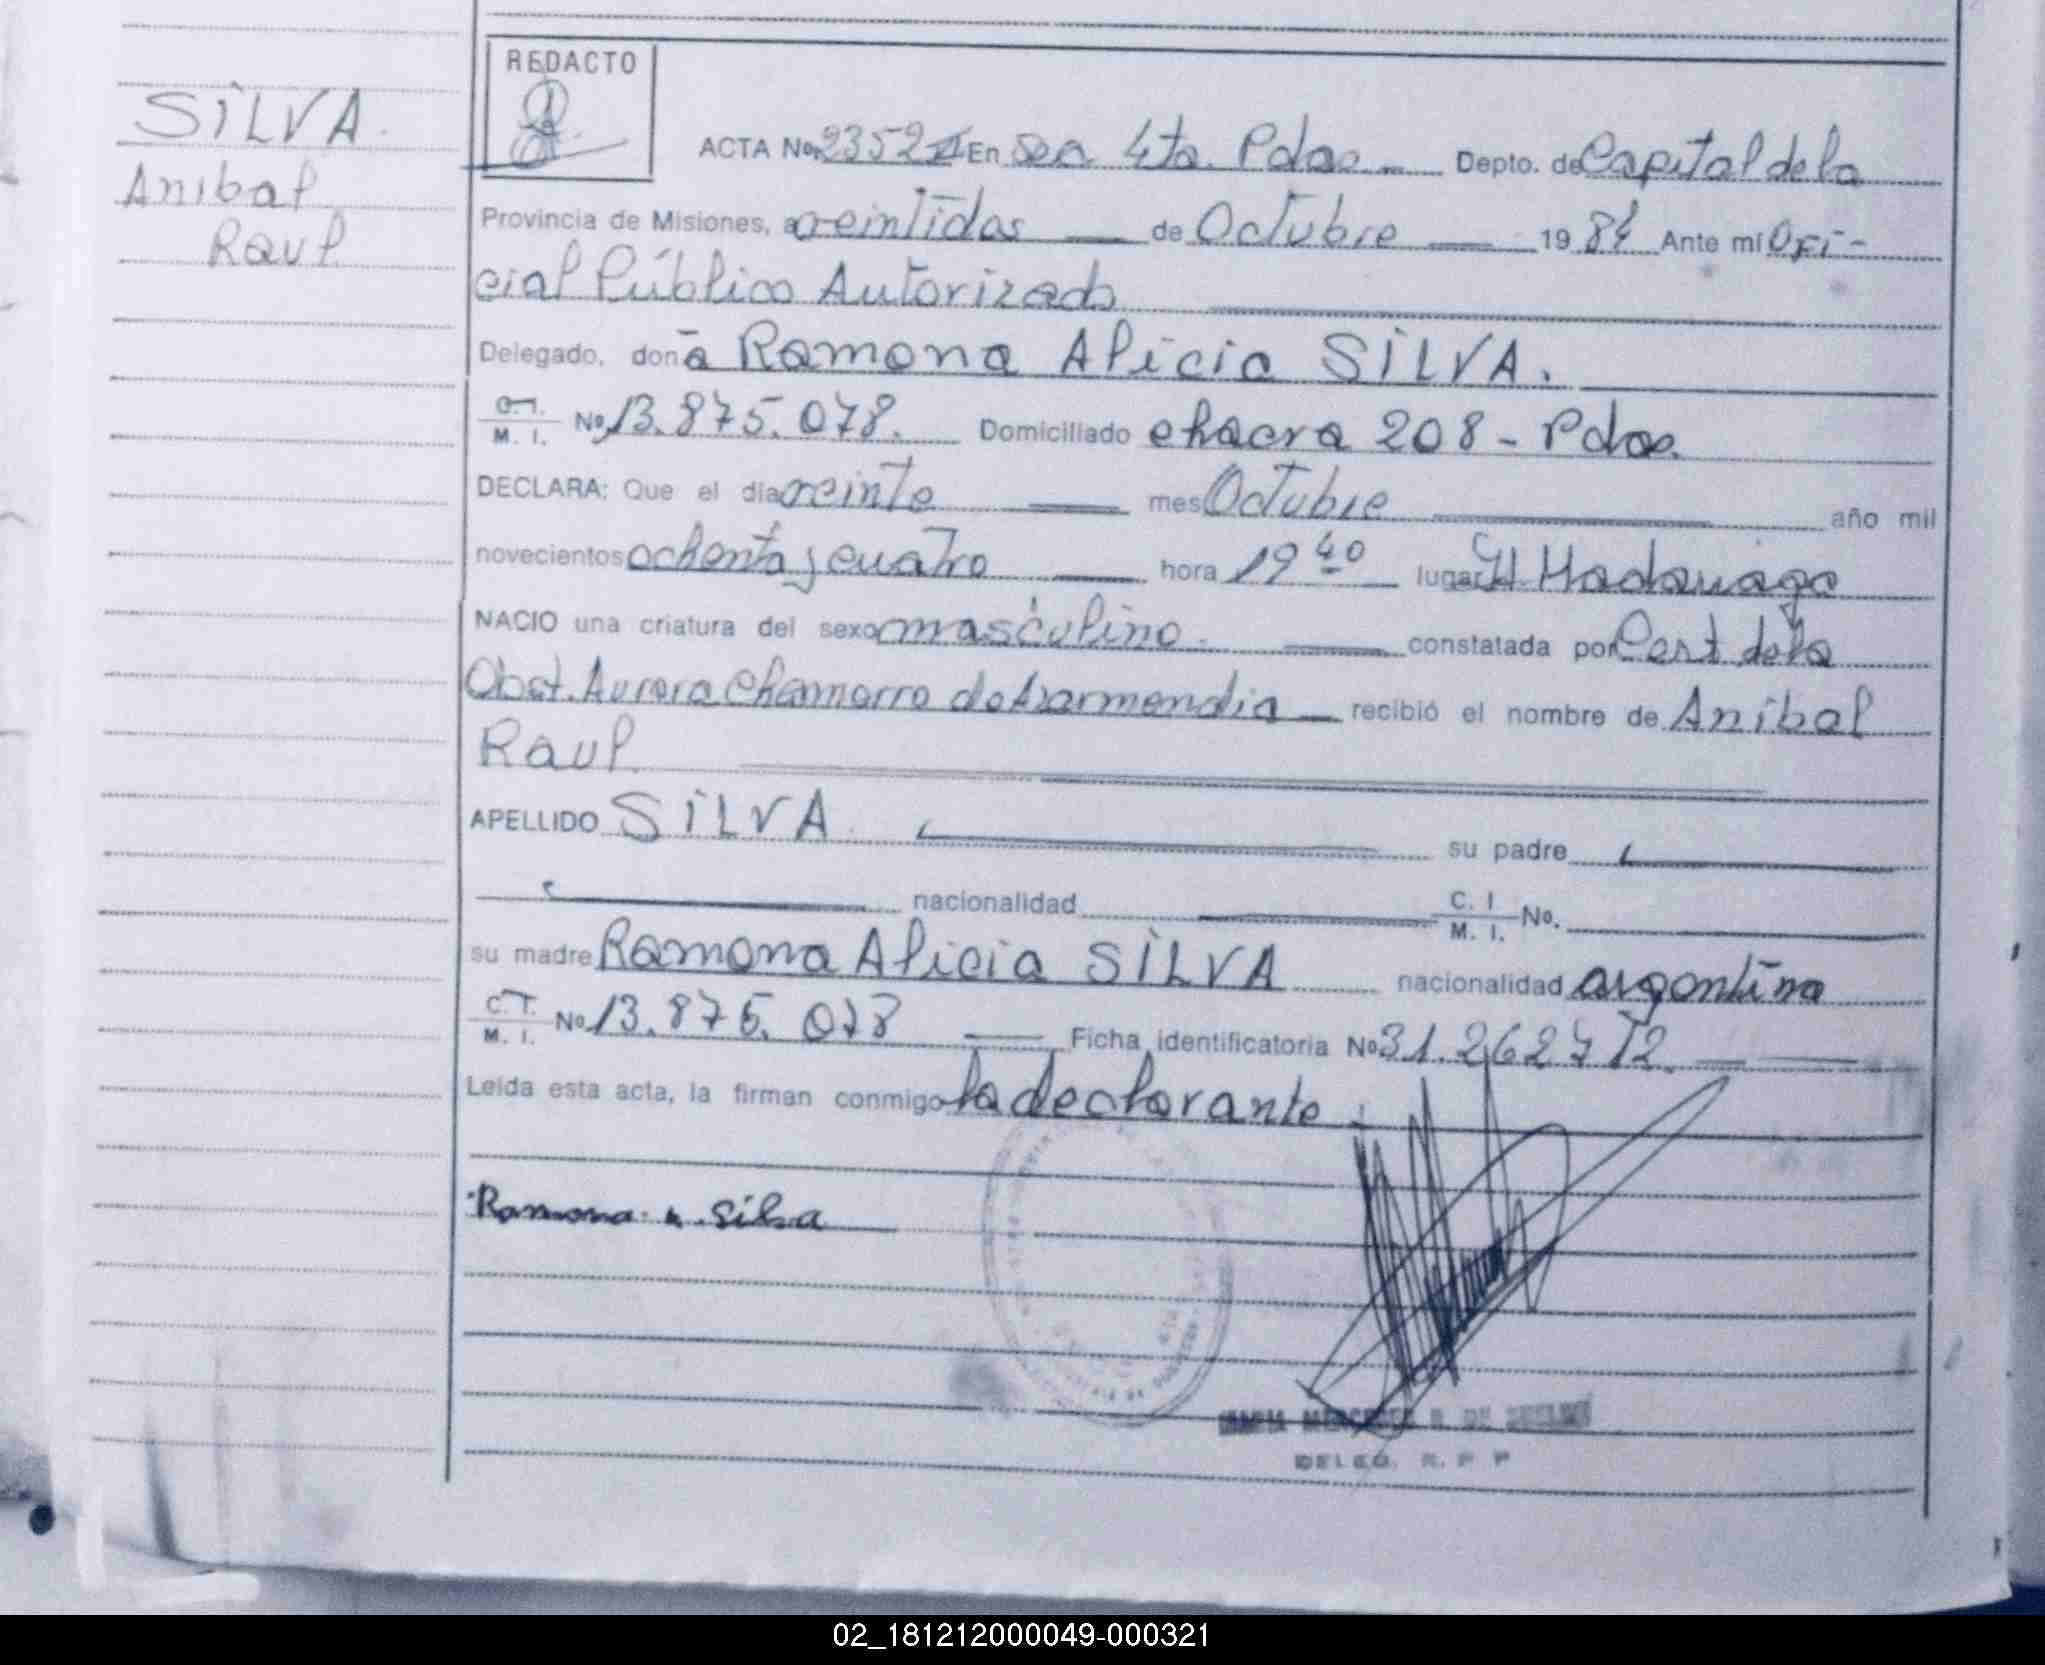 REDACTO
SILVA.
Anibal
Raul.
ACTA No. 2352 En Sec 4ta. Pdas. Depto. de Capital de la
Provincia de Misiones, a veintidos de Octubre 19 84 Ante mí Ofi-
cial Público Autorizado
Delegado, don a Ramona Alicia SILVA.
C.I. M. I. No. 13.875.078. Domiciliado chacra 208 - Pdas.
DECLARA: Que el día veinte mes Octubre año mil
novecientos ochenta y cuatro hora 19 40 lugar H. Madariaga
NACIO una criatura del sexo masculino. constatada por Cert de la
Obst. Aurora Chamorro de recibió el nombre de Anibal
Raul.
APELLIDO SILVA su padre
nacionalidad C. I. M. I. No.
su madre Ramona Alicia SILVA nacionalidad argentina
C.I. M. I. No. 13.875.078 Ficha identificatoria No 31.262.712.
Leída esta acta, la firman conmigo la declarante.
Ramona A. Silva
DELEG. R. P P
02_181212000049-000321